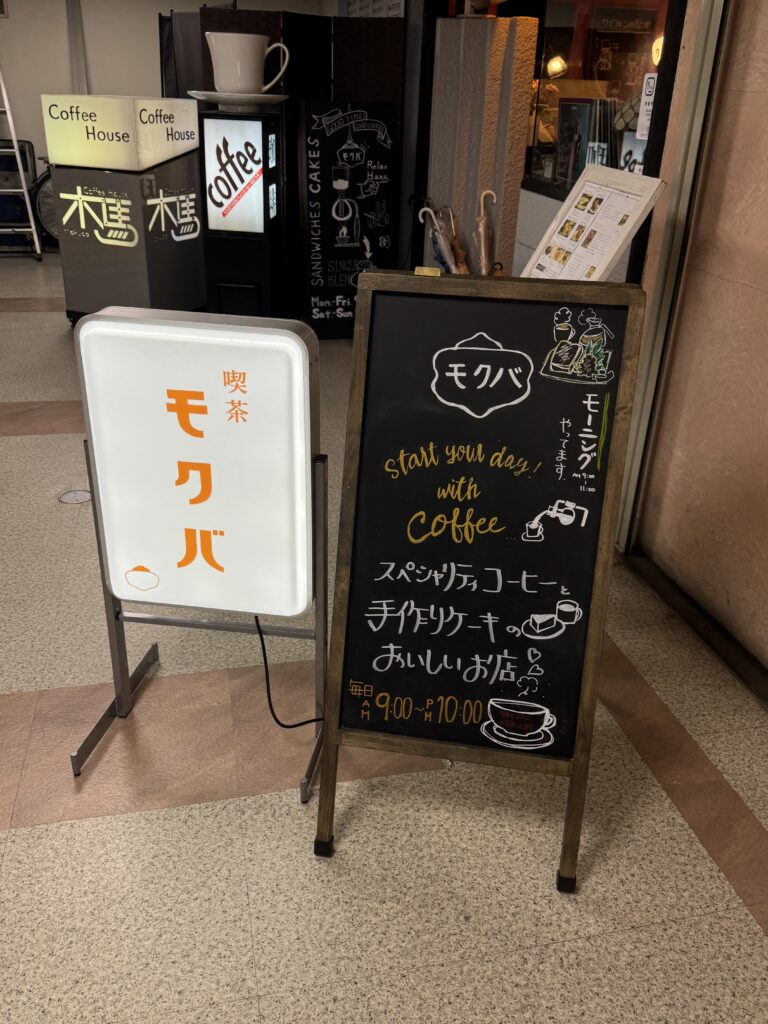 Coffee
House
Coffee
House
Coffee House
木馬
木馬
coffee
モクバ
SANDWICHES CAKES
Relax
Here
SINGLE
BLEND
Mon-Fri
Sat-Sun
喫茶
モクバ
モクバ
モーニング
やってます。
AM 9:00
～
11:00
Start your day!
with
Coffee
スペシャリティコーヒーと
手作りケーキの
おいしいお店
毎日
AM 9:00~PM 10:00